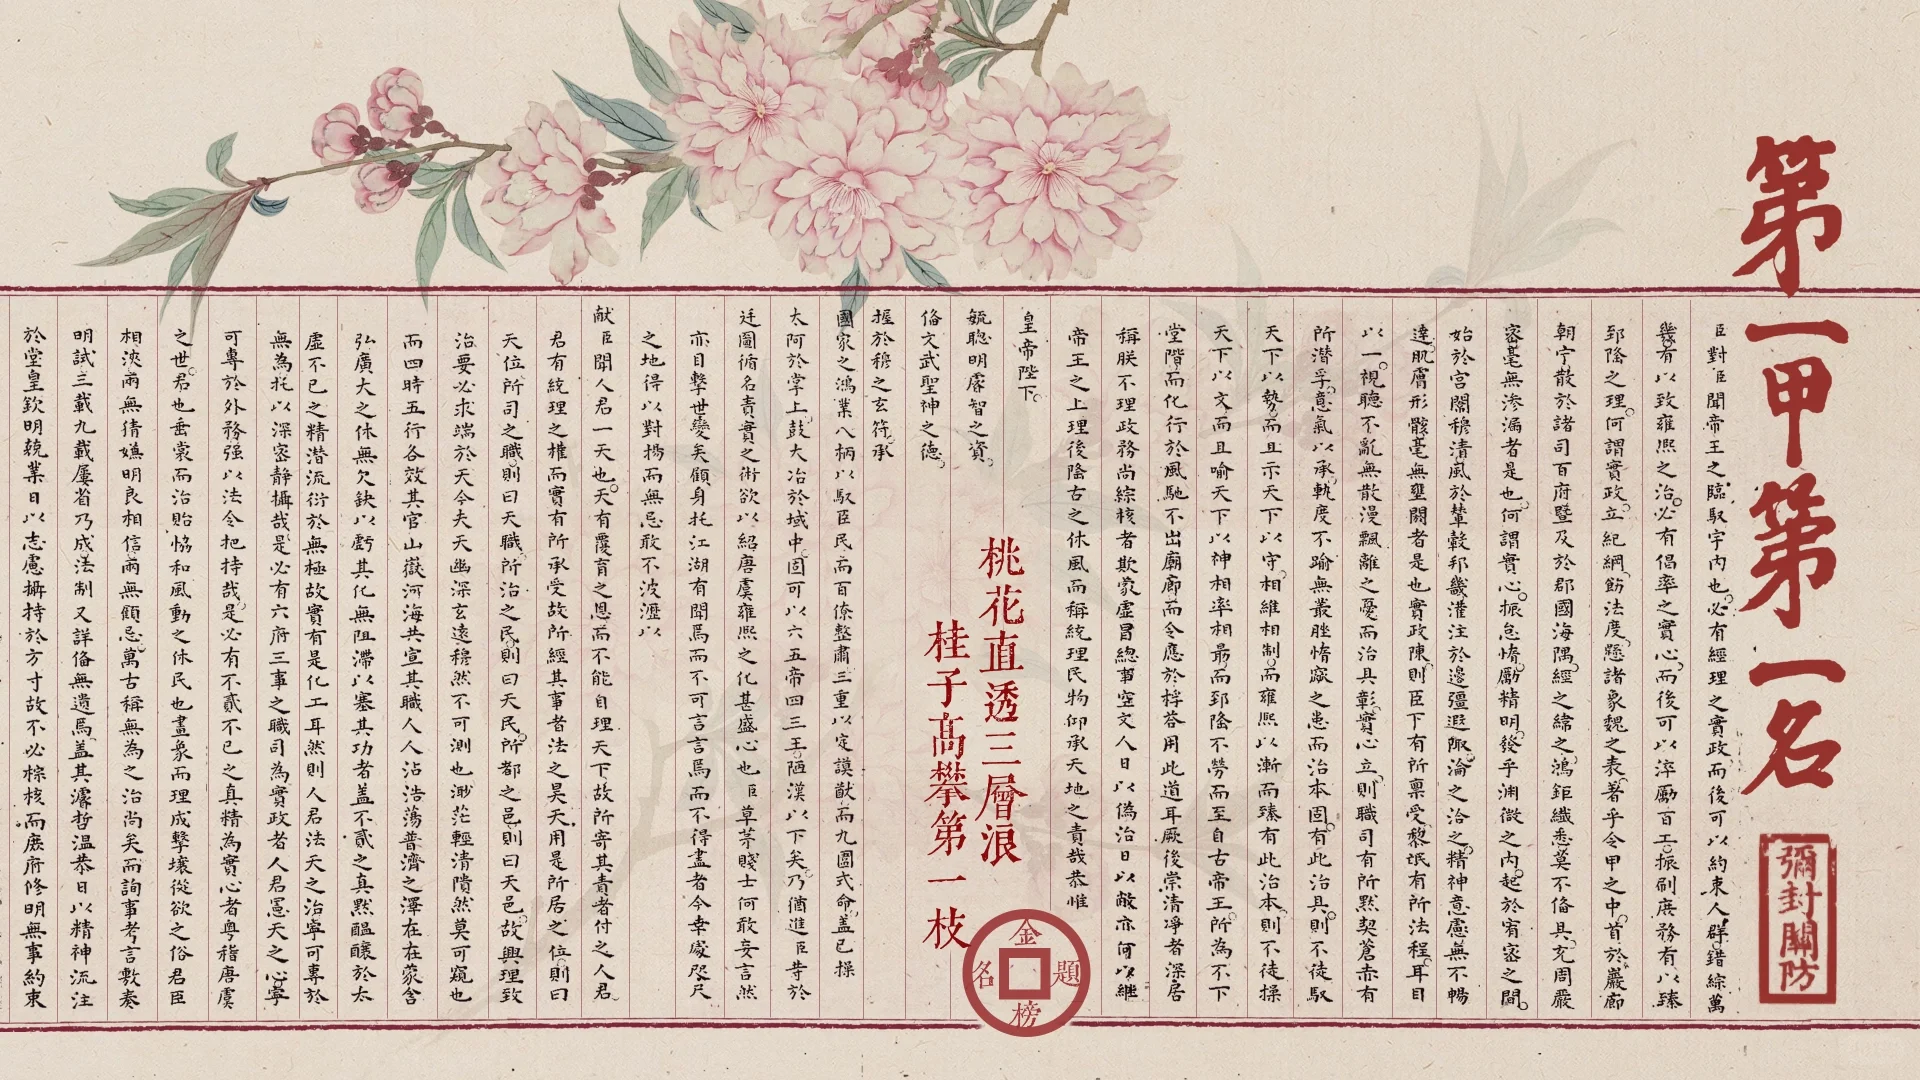 第一甲第一名
彌封關防
臣對臣聞帝王之臨馭宇內也必有經理之實政而後可以約束人群錯綜萬
幾有以致雍熙之治必有倡率之實心而後可以淬勵百工振刷庶務有以臻
郅隆之理何謂實政立紀綱飭法度懸諸象魏之表著乎令甲之中首於巖廊
朝宁散於諸司百府暨及於郡國海隅經之緯之鴻鉅纖悉莫不俻具充周嚴
密毫無滲漏者是也何謂實心振怠惰勵精明發乎淵微之內起於宥密之間
始於宮闈穆清風於輦轂邦畿灌注於邊疆遐陬淪之洽之精神意慮無不暢
達肌膚形骸毫無壅閼者是也實政陳則臣下有所禀受黎氓有所法程耳目
以一視聽不亂無散漫飄離之憂而治具彰實心立則職司有所默契蒼赤有
所潛孚意氣以承軌度不踰無叢脞惰窳之患而治本固有此治具則不徒馭
天下以勢而且示天下以守相維相制而雍熙以漸而臻有此治本則不徒操
天下以文而且喻天下以神相率相勗而郅隆不勞而至自古帝王所為不下
堂階而化行於風馳不出廟廊而令應於桴荅用此道耳厥後崇清凈者深居
稱朕不理政務尚綜核者欺蒙虛冒總事空文人日以偽治日以敝亦何以繼
帝王之上理後隆古之休風而稱統理民物仰承天地之責哉恭惟
皇帝陛下
毓聰明睿智之資
俻文武聖神之德
握於穆之玄符承
國家之鴻業八柄以馭臣民而百僚整肅三重以定謨猷而九圍式命蓋已操
太阿於掌上鼓大冶於域中固可以六五帝四三王陋漢以下矣乃猶進臣等於
廷圖循名責實之術欲以紹唐虞雍熙之化甚盛心也臣草茅賤士何敢妄言然
亦目擊世變矣顧身托江湖有聞焉而不可言言焉而不得盡者今幸處咫尺
之地得以對揚而無忌敢不披瀝以
獻臣聞人君一天也天有覆育之恩而不能自理天下故所寄其責者付之人君
君有統理之權而實有所承受故所經其事者法之昊天用是所居之位則曰
天位所司之職則曰天職所治之民則曰天民所都之邑則曰天邑故興理致
治要必求端於天今夫天幽深玄遠穆然不可測也渺茫輕清隤然莫可窺也
而四時五行各效其官山嶽河海共宣其職人人沾浩蕩普濟之澤在在蒙含
弘廣大之休無欠缺以虧其化無阻滯以塞其功者蓋不貳之真默醞釀於太
虛不已之精潛流衍於無極故實有是化工耳然則人君法天之治寧可專於
無為托以深密靜攝哉是必有六府三事之職司為實政者人君憲天之心寧
可專於外務强以法令把持哉是必有不貳不已之真精為實心者粵稽唐虞
之世君也垂裳而治貽協和風動之休民也畫象而理成擊壤從欲之俗君臣
相浹兩無猜嫌明良相信兩無顧忌萬古稱無為之治尚矣而詢事考言敷奏
明試三載九載屢省乃成法制又詳俻無遺焉蓋其濬哲溫恭日以精神流注
於堂皇欽明兢業日以志慮攝持於方寸故不必綜核而庶府修明無事約束
桃花直透三層浪
桂子高攀第一枝
金榜題名